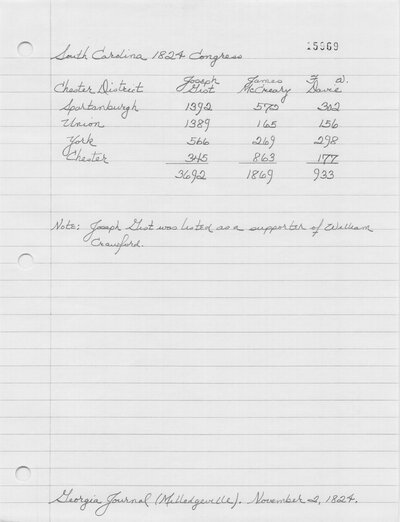 15569
South Carolina 1824 Congress
Chester District Joseph Gist James McCreary F. a. Davie
Spartanburgh 1392 572 302
Union 1389 165 156
York 566 269 298
Chester 345 863 177
3692 1869 933
Note: Joseph Gist was listed as a supporter of William
Crawford.
Georgia Journal (Milledgeville). November 2, 1824.